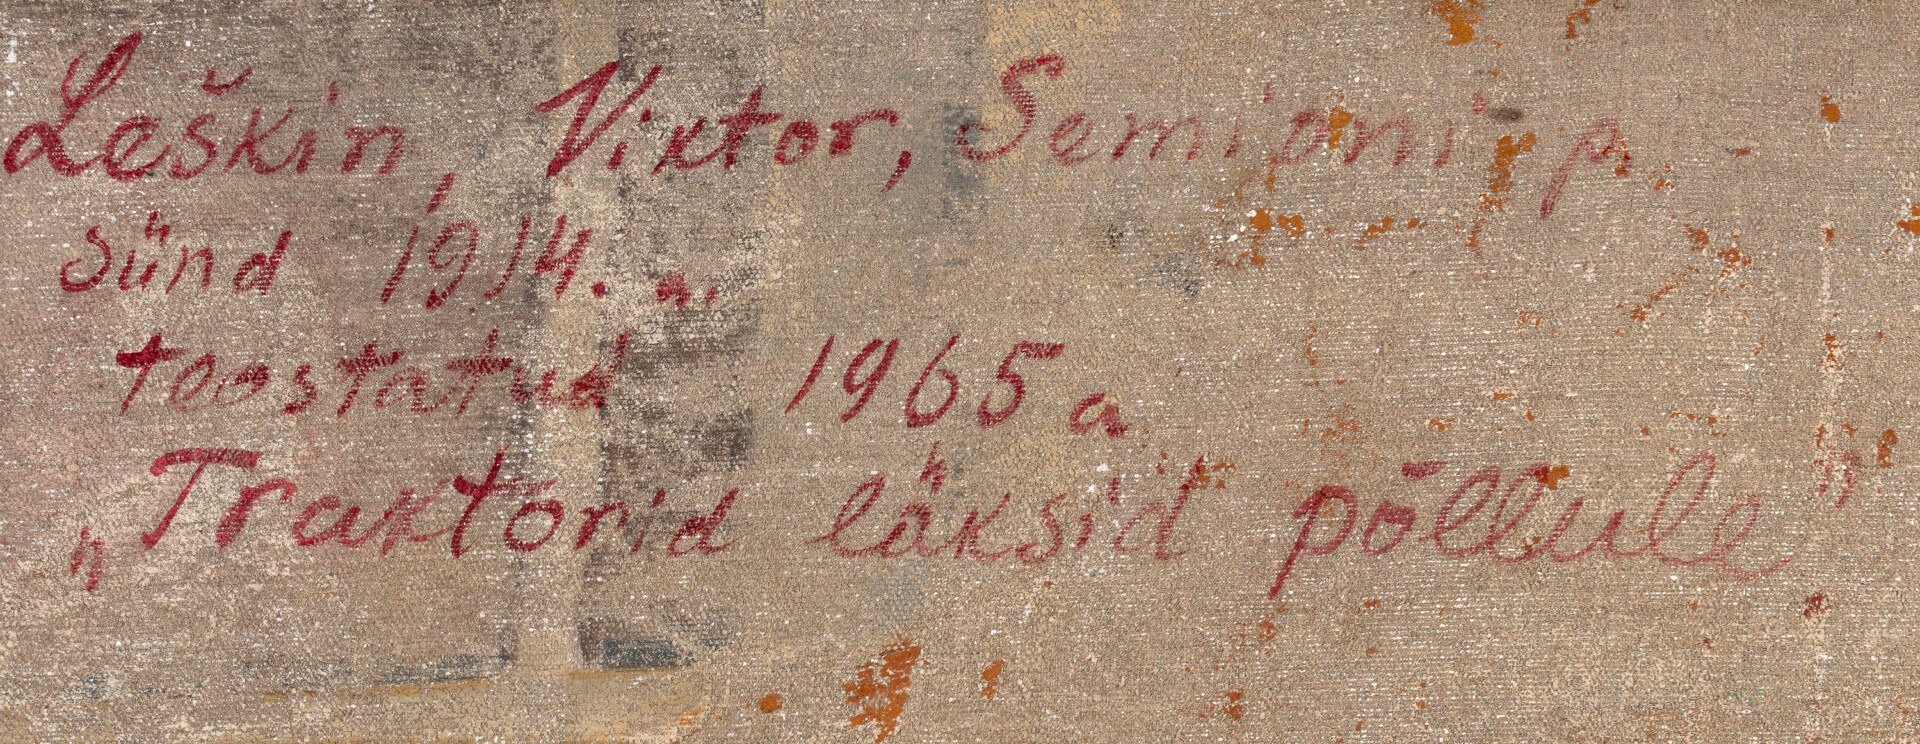 Leškin, Viktor, Semioni p.
sünd 1914. a.
teostatud 1965 a
„Traktorid läksid põllule"